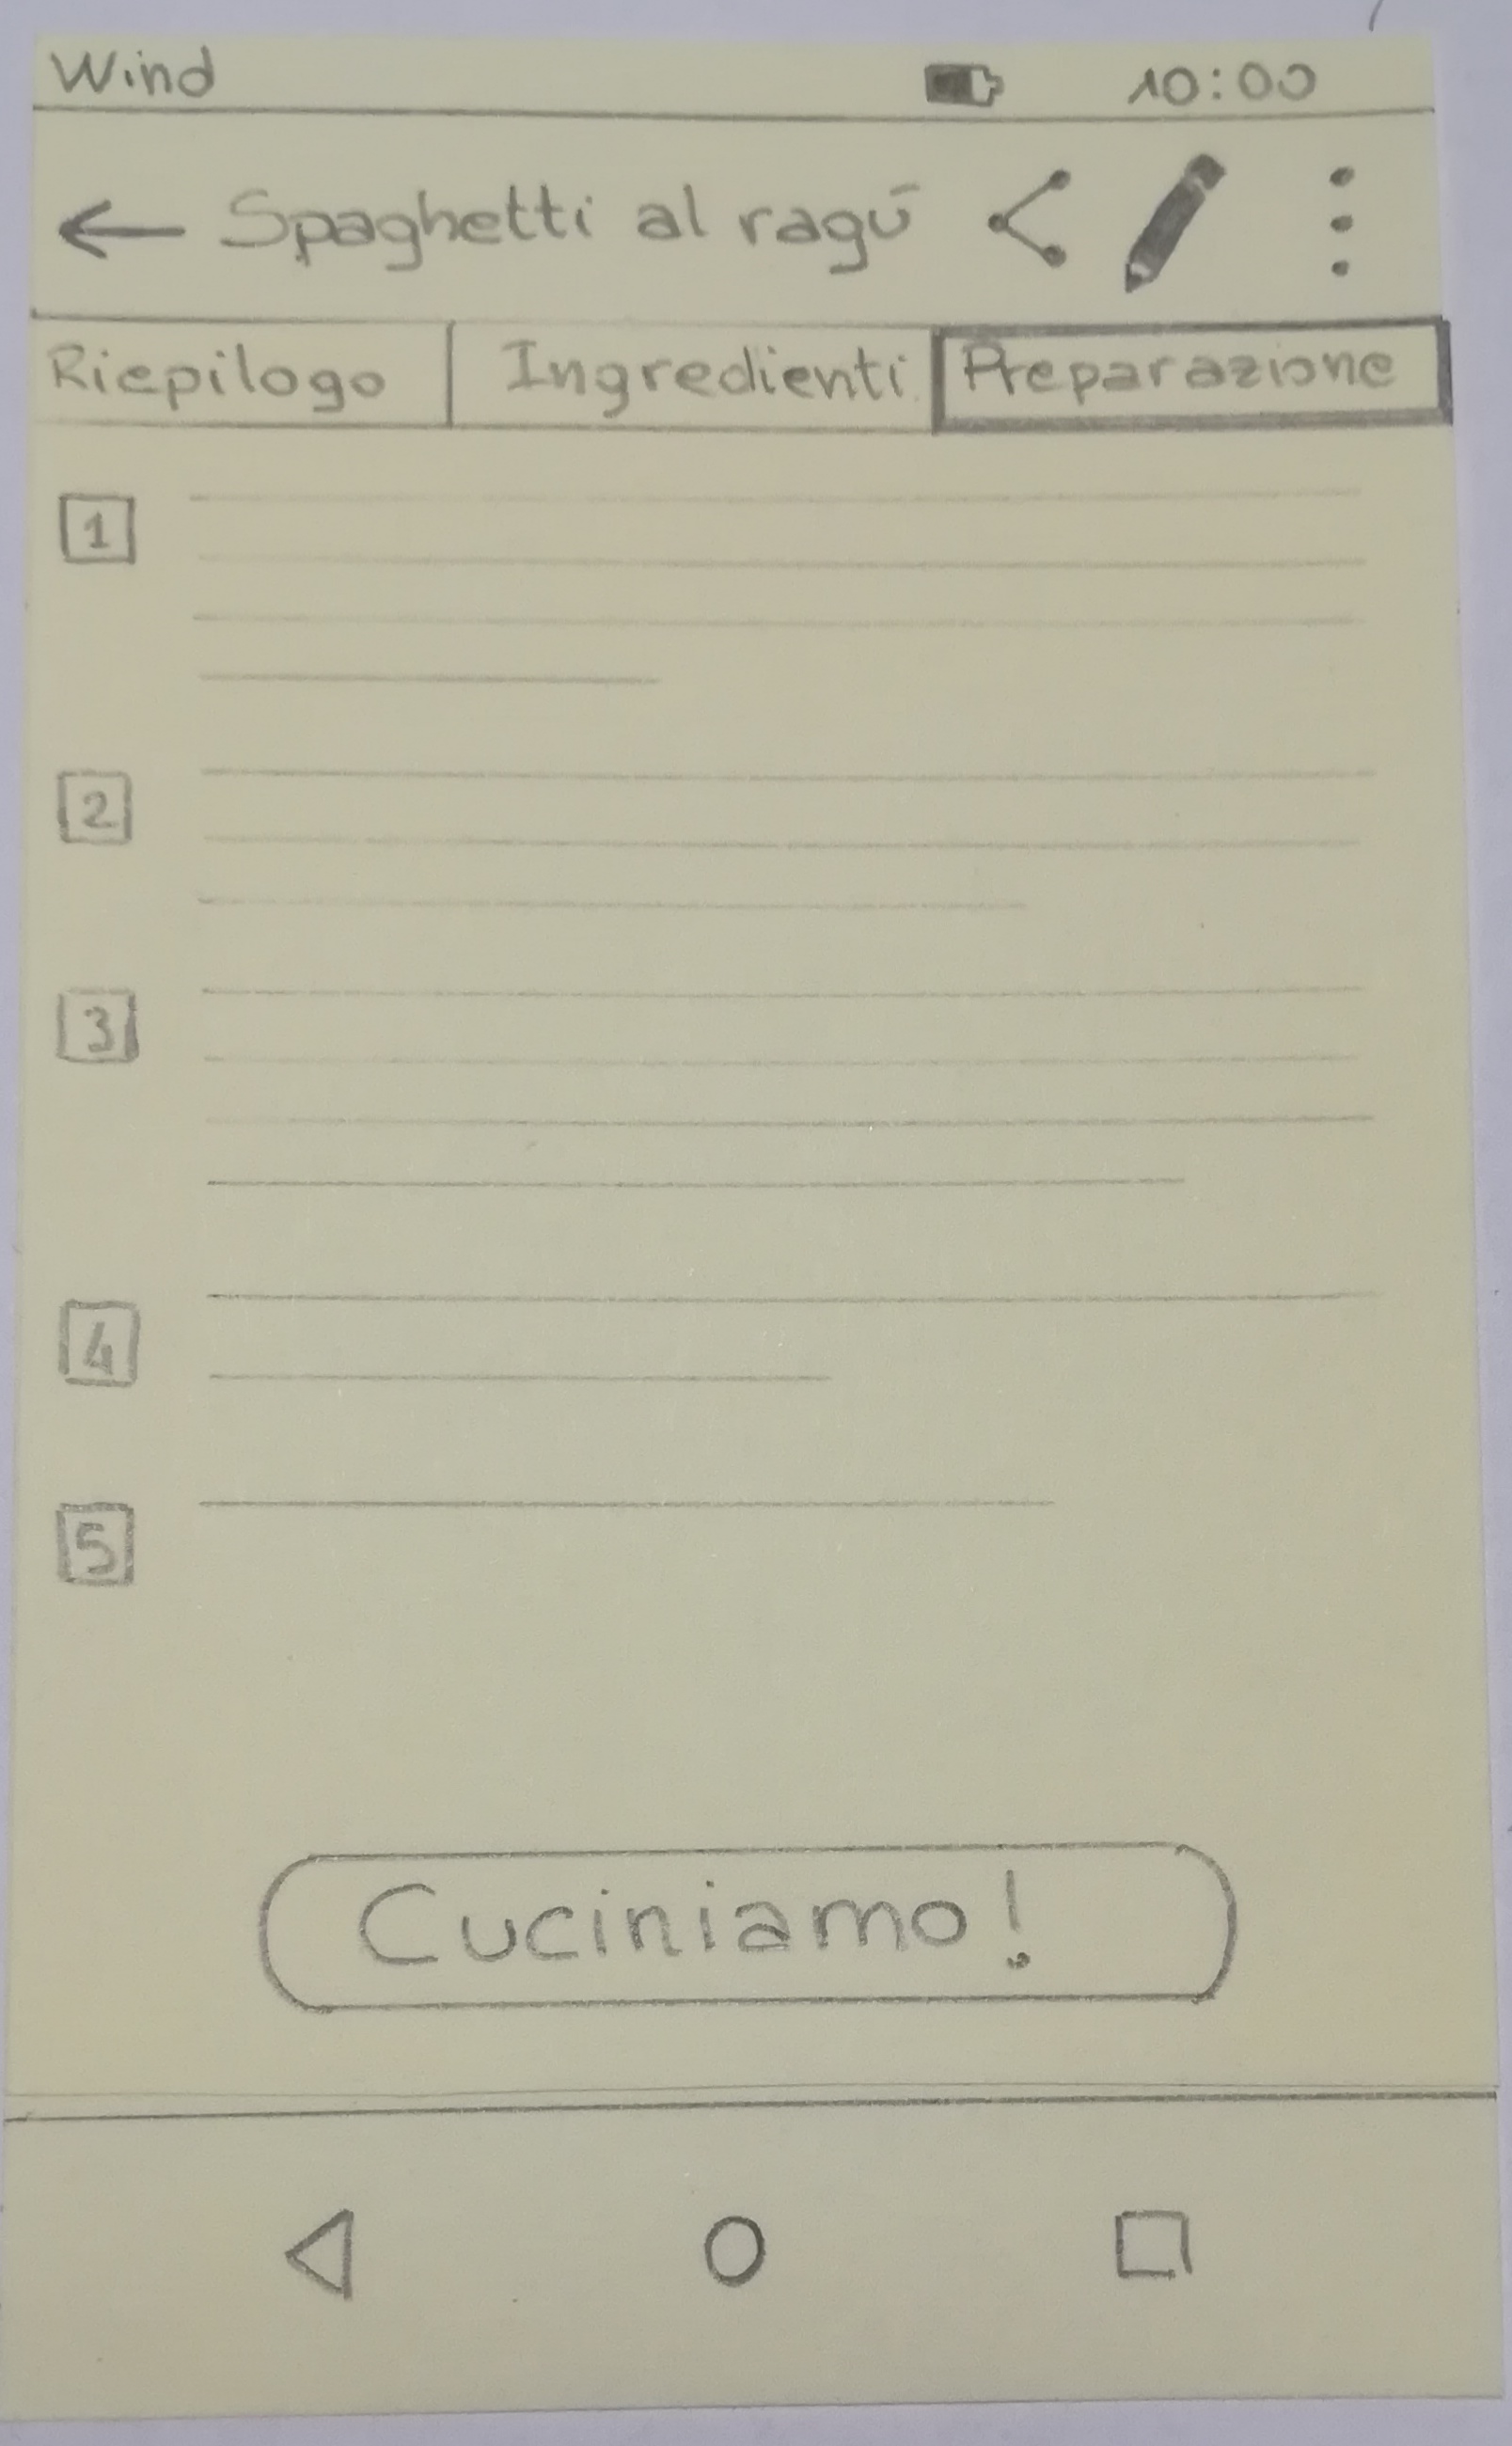 Wind 10:00
Spaghetti al ragú
Riepilogo Ingredienti Preparazione
1
2
3
4
5
Cuciniamo!